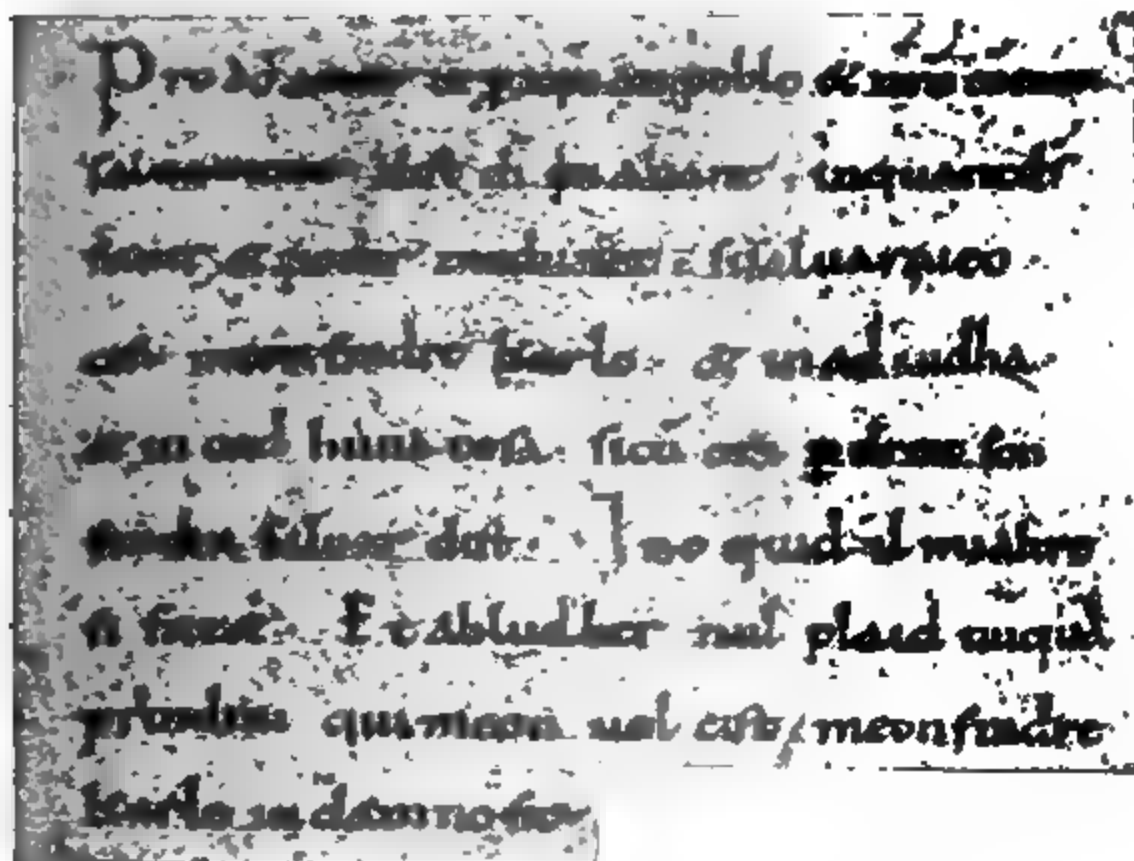 Pro dō amur & p xpian poblo & nrō comun
saluament dist di in auant. inquant ds
sauir & podir medunat. sisaluaraieo
cist meon fradre karlo. & in adiudha.
& in cad huna cosa. sicū om p dreit son
fradra saluar dist. Ino quid il mi altre
si fazet. Et abludher nul plaid nunquā
prindrai qui meon uol cist meonfradre
karle in damno sit.